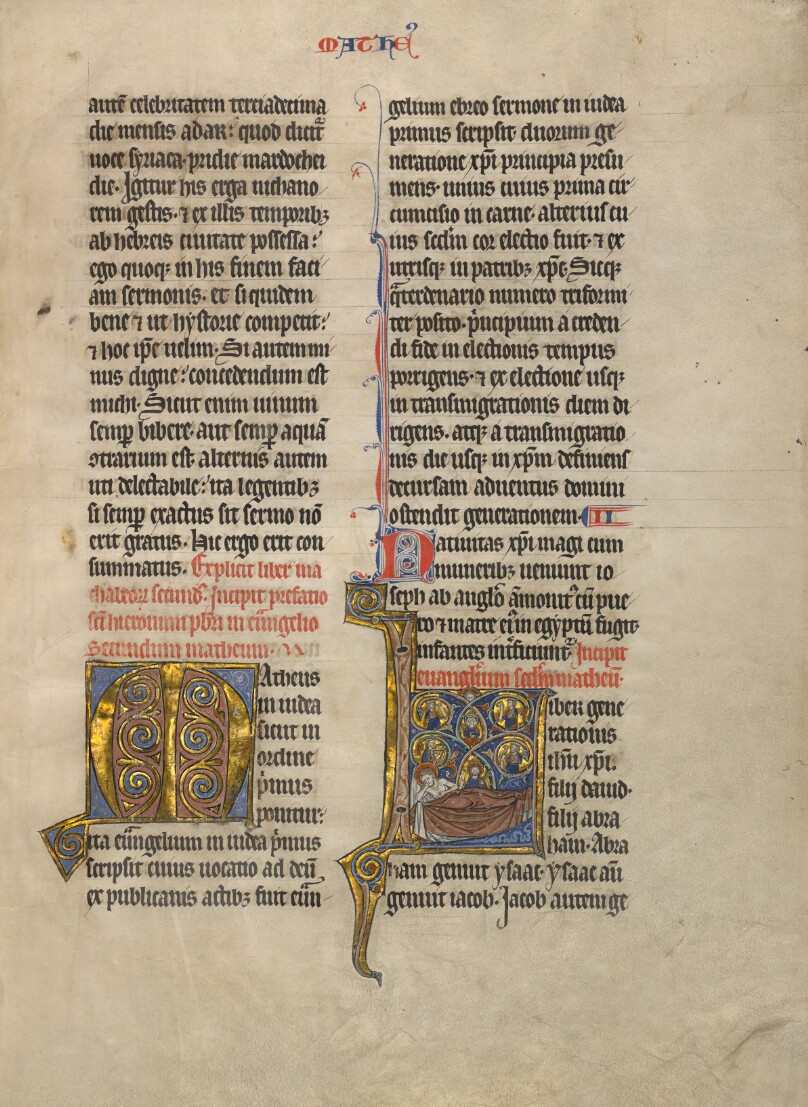 MATHE᾿
autē celebritatem terciadecima
die mensis adar: quod dicit᷑
uoce syriaca pridie mardochei
die. Igitur his erga nichano
rem gestis. ⁊ ex illis temporibꝫ
ab hebreis ciuitate possessa:
ego quoqꝫ in his finem faci
am sermonis. et si quidem
bene ⁊ ut hystorie competit:
⁊ hoc ip̄e uelim. Si autem mi
nus digne: concedendum est
michi. Sicut enim uinum
semꝑ bibere. aut semꝑ aquā
ɔtrarium est. alternis autem
uti delectabile: ita legentibꝫ
si semꝑ exactus sit sermo nō
erit gratus. Hic ergo erit con
summatus. Explicit liber ma
chabeoꝝ secundꝰ. Incipit prefatio
sc̄i hieronimi pbr̄i in eūngelio
secundum matheum.
Matheus
in iudea
sicut in
ordine
p̄mus
ponitur:
ita eūngelium in iudea p̄mus
scripsit cuius uocatio ad deū
ex publicanis actibꝫ fuit eūn
gelium ebreo sermone in iudea
primus scripsit. duorum ge
neratione xp̄i principia presu
mens. unius cuius prima cir
cumcisio in carne. alterius cu
ius sed'm cor electio fuit. ⁊ ex
utrisqꝫ in patribꝫ xp̄c. Sicqꝫ
q̄terdenario numero triformi
ter posito. p̄ncipium a creden
di fide in electionis tempus
porrigens. ⁊ ex electione usqꝫ
in transmigrationis diem di
rigens. atqꝫ a transmigratio
nis die usqꝫ in xp̄m definiens
decursam aduentus domini
ostendit generationem. II
Natiuitas xp̄i magi cum
muneribꝫ ueniunt io
seph ab anglo āmonit᷑ cū pue
ro ⁊ matre ei᷑ in egyptū fugit
infantes int̄ficiunt᷑ Incipit
euangl'ium sed'm matheū.
Liber gene
rationis
ih̄u xp̄i.
filij dauid.
filij abra
ham. Abra
ham genuit ysaac. ysaac aū
genuit iacob. Jacob autem ge